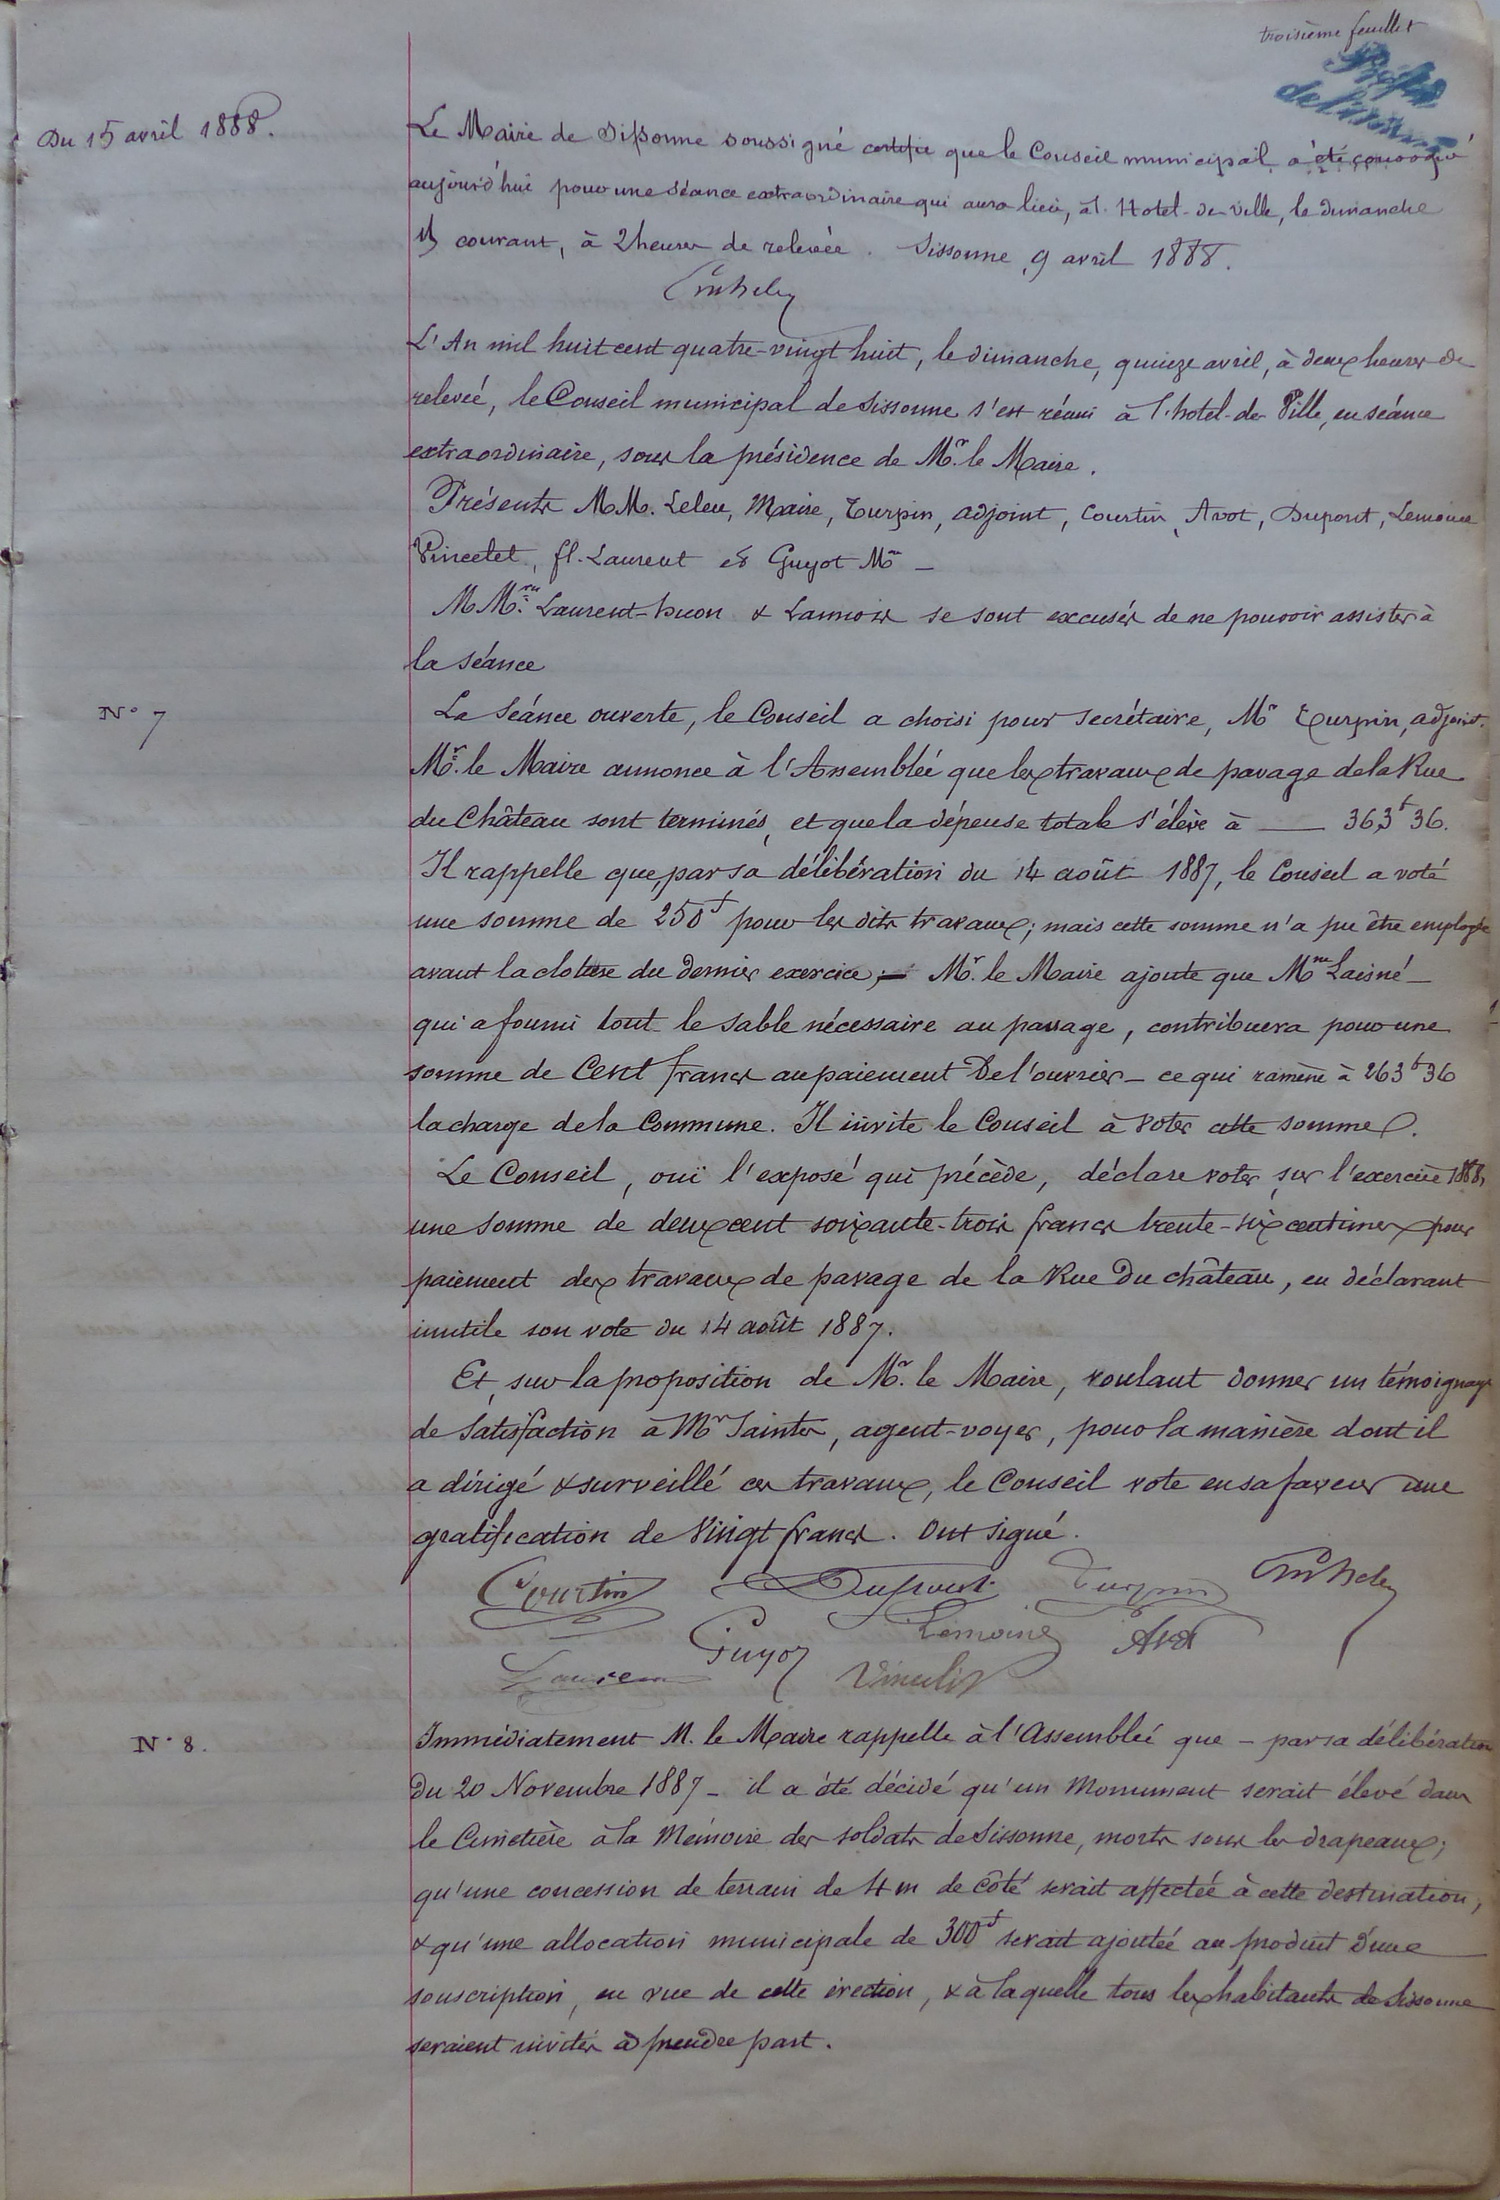 troisième feuillet
Du 15 avril 1888.
Le Maire de Sissonne soussigné certifie que le Conseil municipal a été convoqué
aujourd'hui pour une séance extraordinaire qui aura lieu, à l'Hotel-de-Ville, le dimanche
15 courant, à 2 heures de relevée. Sissonne, 9 avril 1888.
L'An mil huit cent quatre-vingt huit, le dimanche, quinze avril, à deux heures de
relevée, le Conseil municipal de Sissonne s'est réuni à l'hotel-de-Ville, en séance
extraordinaire, sous la présidence de Mr. le Maire.
Présents MM. Leleu, Maire, Turpin, adjoint, Courtin, Avot, Dupont, Lemoine
Vincelet, fl. Laurent et Guyot
MM. Laurent-huon & Lannois se sont excusés de ne pouvoir assister à
la séance
N° 7
La Séance ouverte, le Conseil a choisi pour secrétaire, Mr Turpin, adjoint.
Mr. le Maire annonce à l'Assemblée que les travaux de pavage de la Rue
du Château sont terminés, et que la dépense totale s'élève à — 363f 36.
Il rappelle que, par sa délibération du 14 août 1887, le Conseil a voté
une somme de 250f pour les dits travaux; mais cette somme n'a pu être employée
avant la cloture du dernier exercice; — Mr. le Maire ajoute que Mme Laisné —
qui a fourni tout le sable nécessaire au pavage, contribuera pour une
somme de Cent francs au paiement De l'ouvrier — ce qui ramène à 263f 36
la charge de la Commune. Il invite le Conseil à voter cette somme.
Le Conseil, ouï l'exposé qui précède, déclare voter, sur l'exercice 1888,
une somme de deux cent soixante-trois francs trente-six centimes pour
paiement des travaux de pavage de la Rue Du château, en déclarant
inutile son vote du 14 août 1887.
Et, sur la proposition de Mr. le Maire, voulant donner un témoignage
de Satisfaction à Mr Saintes, agent-voyer, pour la manière dont il
a dirigé & surveillé ces travaux, le Conseil vote en sa faveur une
gratification de Vingt francs. Ont signé.
Courtin Dupont Turpin
Guyot Lemoine Avot
Laurent Vincelet
N° 8.
Immédiatement M. le Maire rappelle à l'Assemblée que — par sa délibération
Du 20 Novembre 1887 — il a été décidé qu'un Monument serait élevé dans
le Cimetière à la Mémoire des soldats de Sissonne, morts sous les drapeaux;
qu'une concession de terrain de 4m de côté serait affectée à cette destination,
& qu'une allocation municipale de 300f serait ajoutée au produit d'une
souscription, en vue de cette érection, & à laquelle tous les habitants de Sissonne
seraient invités à prendre part.